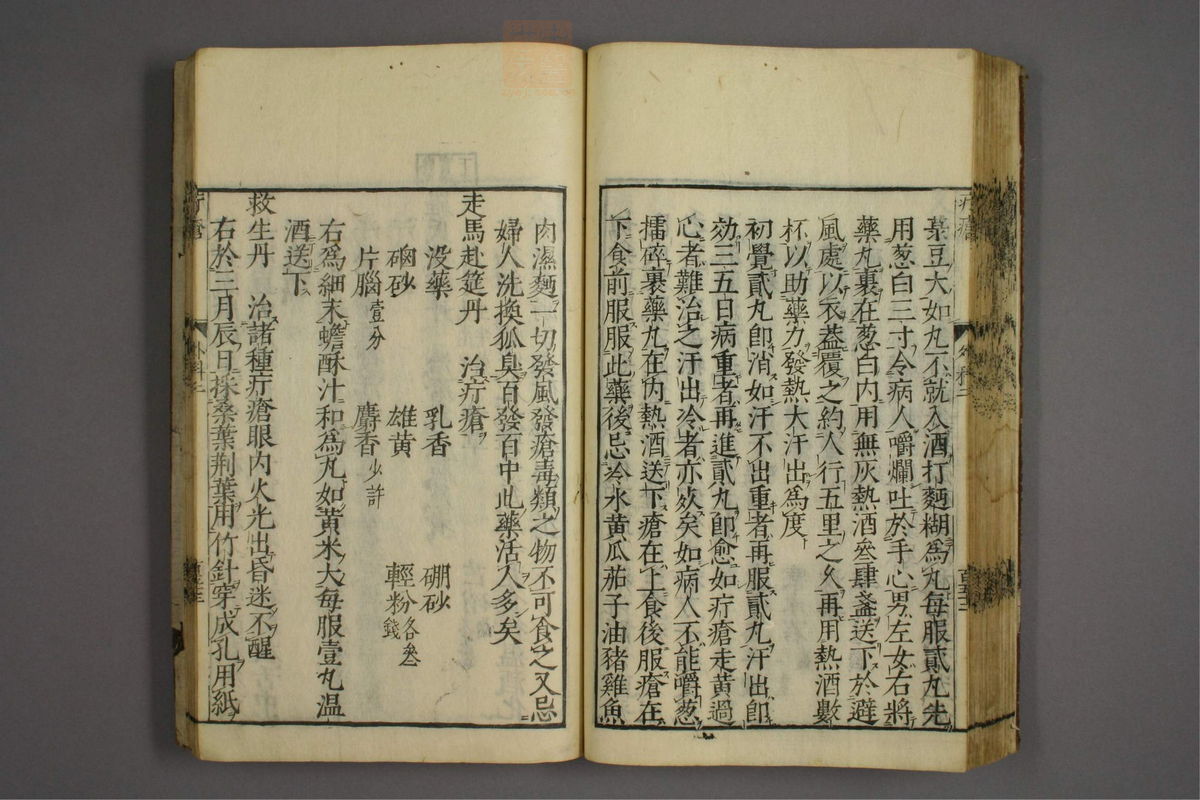 菉豆大如丸不就入酒打麵糊為丸每服貳丸先
用葱白三寸令病人嚼爛吐於手心男左女右將
藥丸裹在葱白内用無灰熱酒叄肆盞送下於避
風處以衣蓋覆之約人行五里之久再用熱酒數
杯以助藥力發熱大汗出為度
初覺貳丸即消如汗不出重者再服貳丸汗出即
効三五日病重者再進貳丸即愈如疔瘡走黄過
心者難治之汗出冷者亦死矣如病人不能嚼葱
擂碎裹藥丸在内熱酒送下瘡在上食後服瘡在
下食前服服此藥後忌冷水黄瓜茄子油豬雞魚
肉濕麵一切發風發瘡毒類之物不可食之又忌
婦人洗換狐臭百發百中此藥活人多矣
走馬赴筵丹 治疔瘡
没藥 乳香 硼砂
硇砂 雄黄 輕粉各叄錢
片腦壹分 麝香少許
右為細末蟾酥汁和為丸如黄米大每服壹丸温
酒送下
救生丹 治諸種疔瘡眼内火光出昏迷不醒
右於三月辰日採桑葉荆葉用竹針穿成孔用紙
疔瘡 外科二